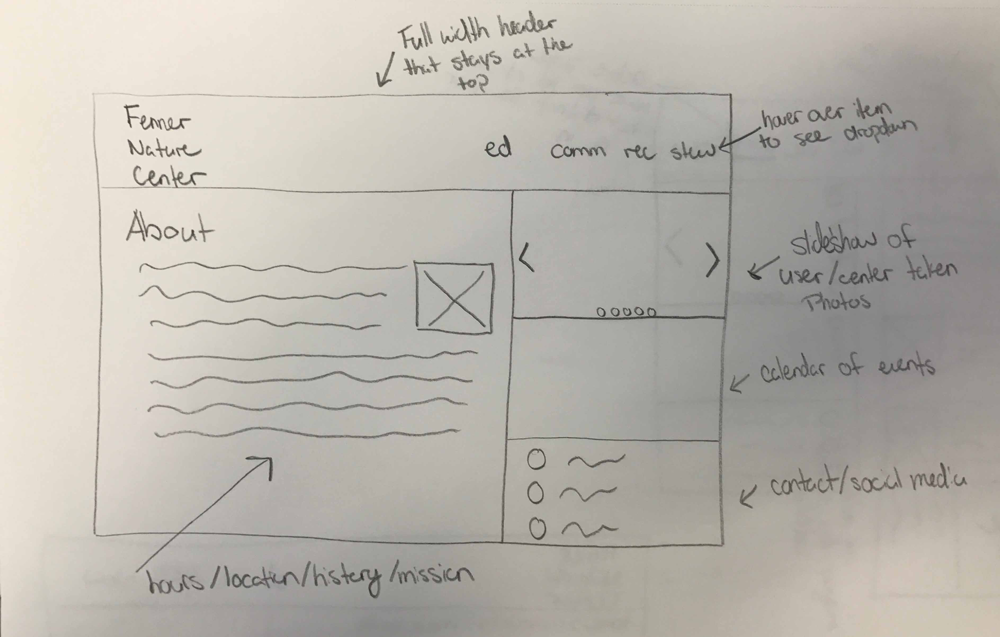 Full width header
that stays at the
top
Fenner
Nature
Center
ed comm rec stew
hover over item
to see dropdown
About
slideshow of
user/center taken
Photos
calendar of events
contact/social media
hours/location/history/mission